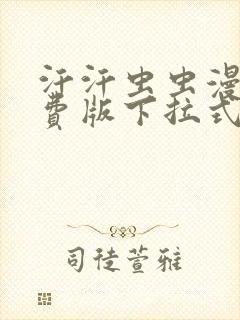 汗汗虫虫漫
费版下拉式
司徒萱雅